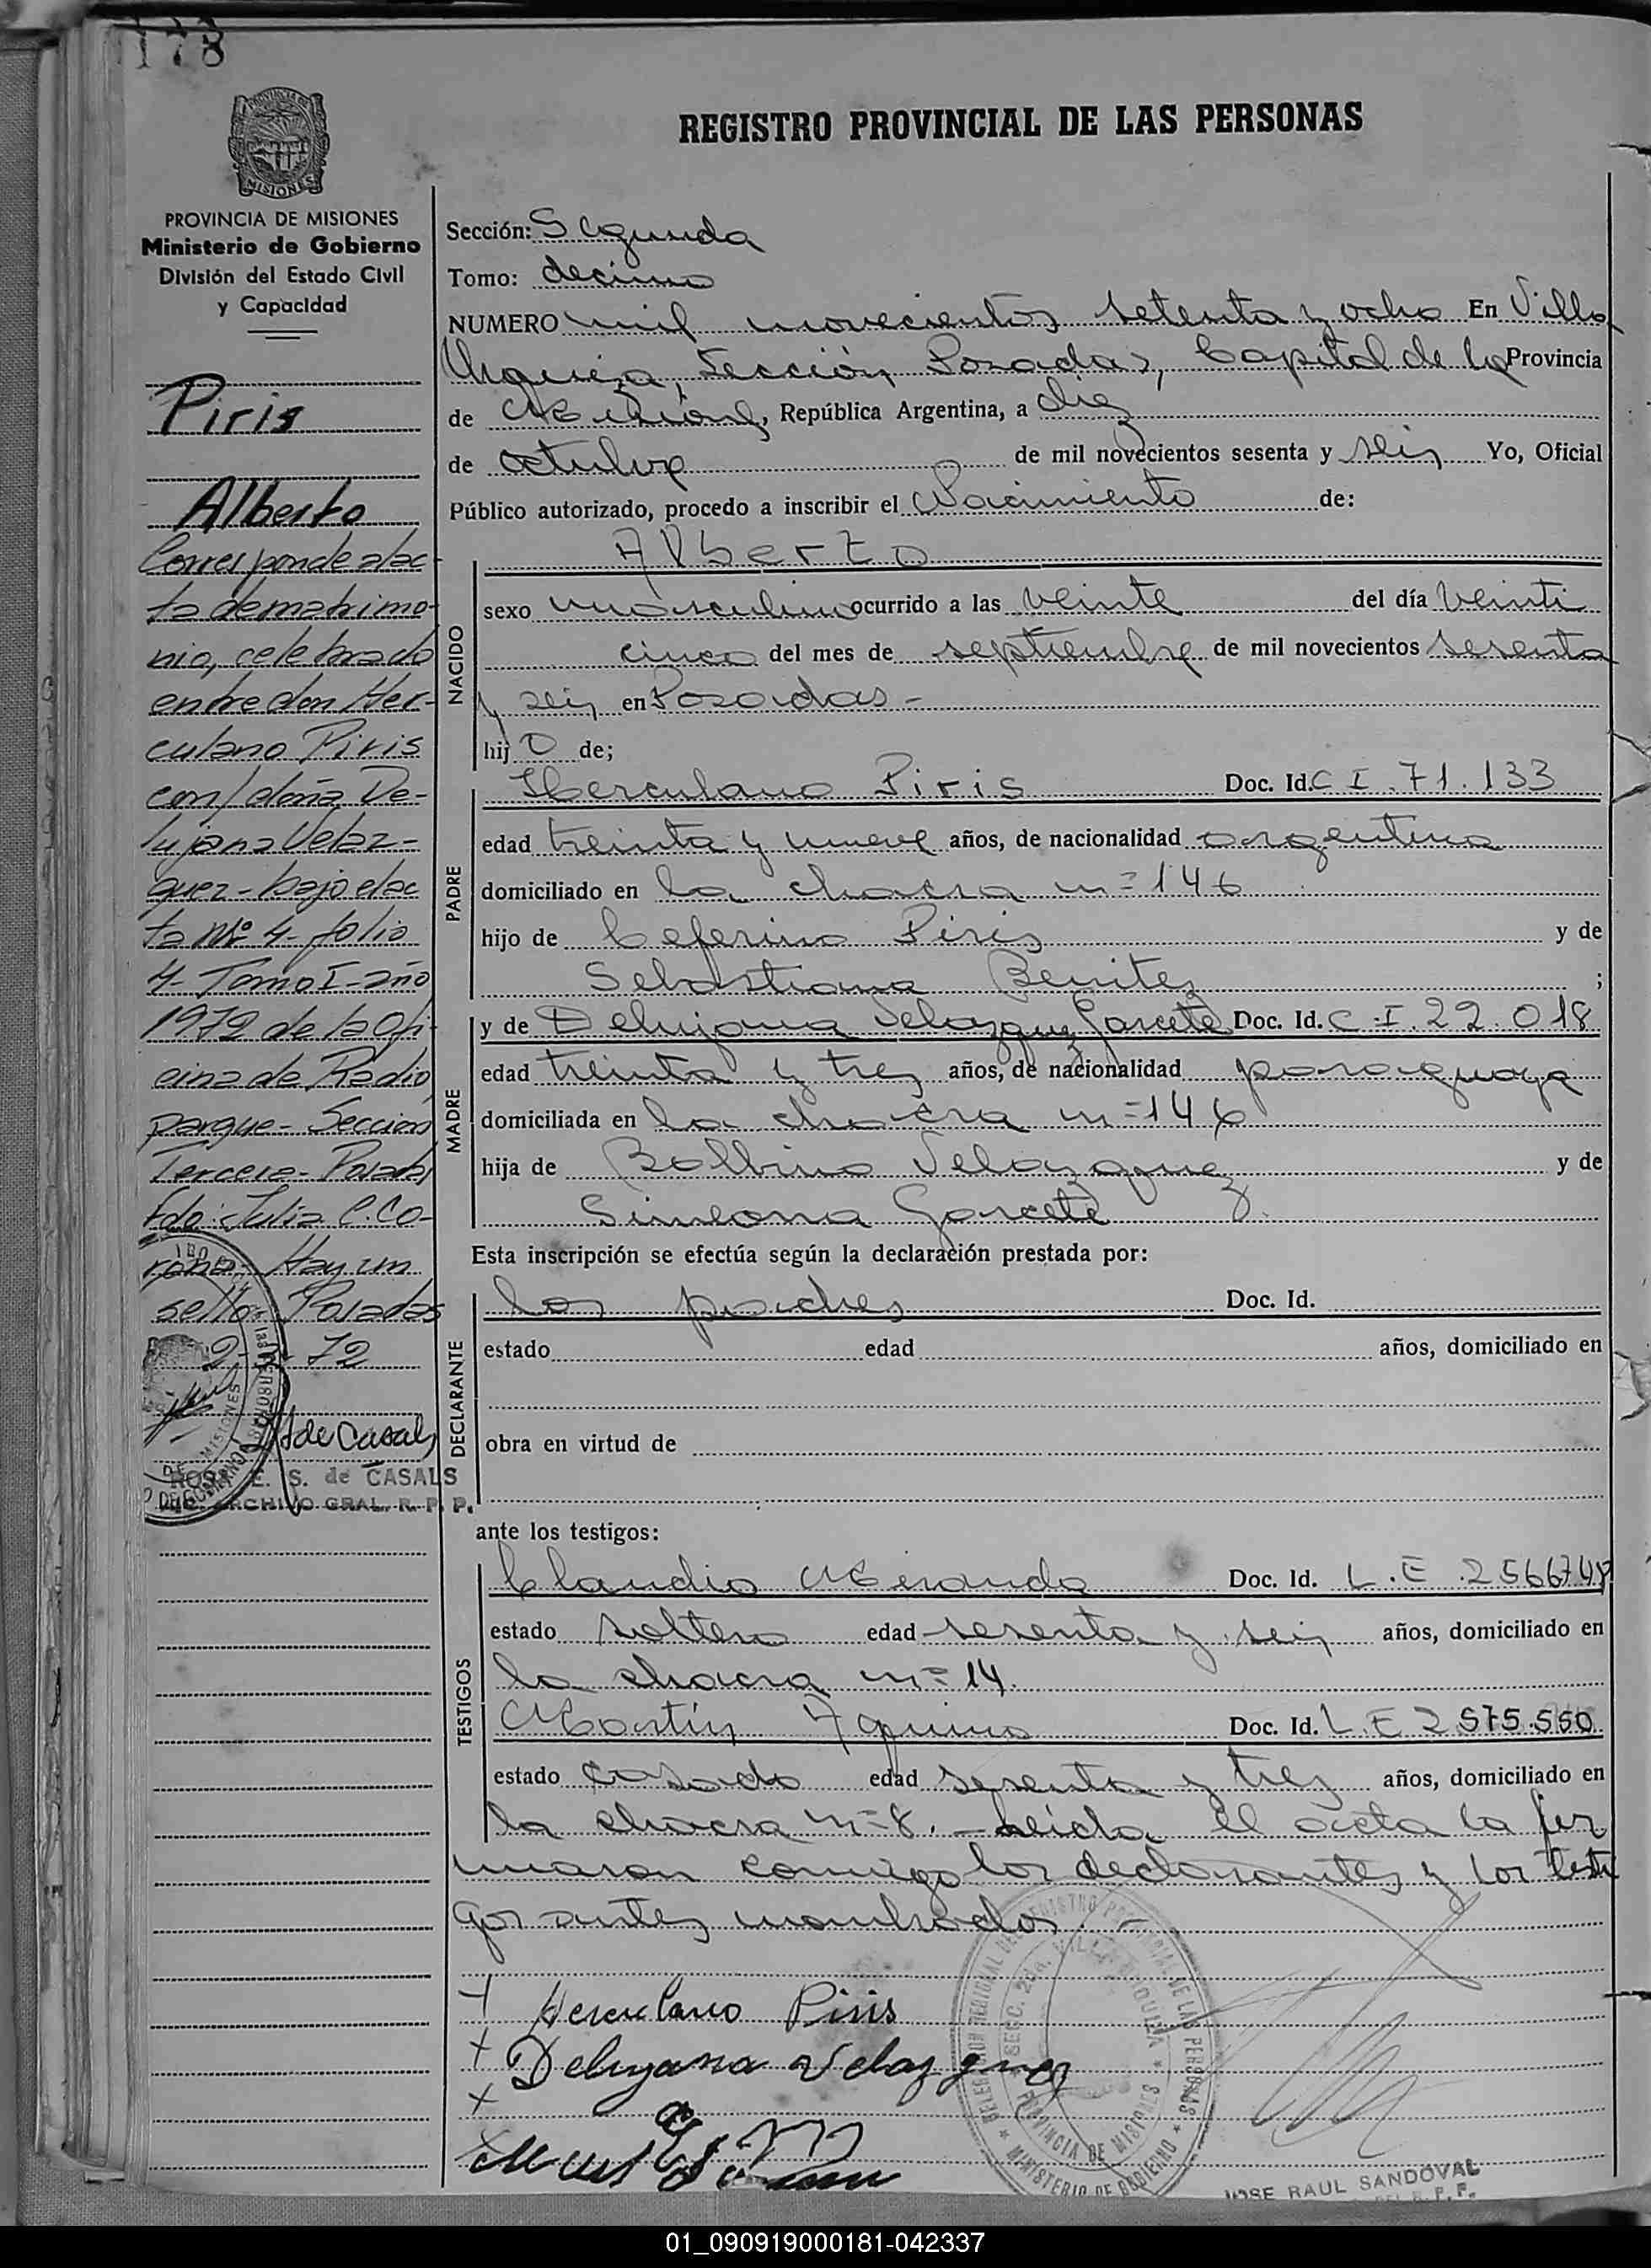 178
PROVINCIA DE MISIONES
Ministerio de Gobierno
División del Estado Civil
y Capacidad
Piris
Alberto
Corresponde al ac-
ta de matrimo-
nio, celebrado
entre don Her-
culano Piris
con/ doña De-
lujana Velaz-
quez - bajo el ac
ta Nº 4- folio
4- Tomo I- año
1972 de la Ofi-
cina de Radio
parque - Sección
Tercera - Posadas
Fdo: Julia C. Co-
rona - Hay un
sello - Posadas
72
de Casals
E. S. de CASALS
ARCHIVO GRAL. R. P. P.
REGISTRO PROVINCIAL DE LAS PERSONAS
Sección: Segunda
Tomo: decimo
NUMERO mil novecientos setenta y ocho En Villa
Urquiza, Sección Posadas, Capital de la Provincia
de Misiones, República Argentina, a diez
de octubre de mil novecientos sesenta y seis Yo, Oficial
Público autorizado, procedo a inscribir el Nacimiento de:
NACIDO
Alberto
sexo masculino ocurrido a las veinte del día veinti
cinco del mes de septiembre de mil novecientos sesenta
y seis en Posadas -
hijo de;
PADRE
Herculano Piris Doc. Id. C I. 71.133
edad treinta y nueve años, de nacionalidad argentina
domiciliado en la chacra nº 146
hijo de Ceferino Piris y de
Sebastiana Benitez ;
MADRE
y de Delujana Velazquez Garcete Doc. Id. C.I. 22.018
edad treinta y tres años, de nacionalidad paraguaya
domiciliada en la chacra nº 146
hija de Balbino Velazquez y de
Simeona Garcete.
Esta inscripción se efectúa según la declaración prestada por:
DECLARANTE
los padres Doc. Id.
estado edad años, domiciliado en
obra en virtud de
ante los testigos:
TESTIGOS
Claudio Miranda Doc. Id. L.E. 2566748
estado soltero edad sesenta y seis años, domiciliado en
la chacra nº 14.
Martín Aquino Doc. Id. L.E 2.575.550
estado casado edad sesenta y tres años, domiciliado en
la chacra nº 8. - Leida el acta la fir
maron conmigo los declarantes y los testi
gos antes nombrados. -
Herculano Piris
Delujana Velazquez
SECC. 2da. VILLA URQUIZA
PROVINCIA DE MISIONES
MINISTERIO DE GOBIERNO
JOSE RAUL SANDOVAL
01_090919000181-042337